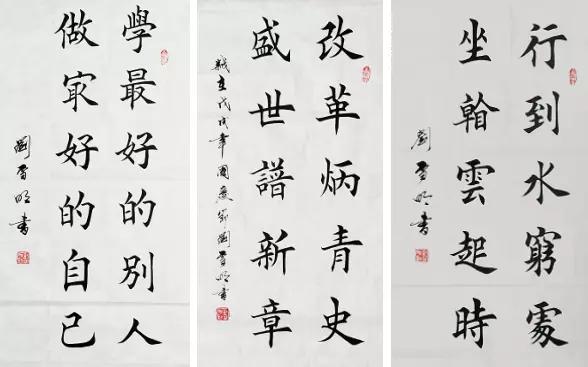 學最好的別人
做㝡好的自己
劉雪明書
改革炳青史
盛世譜新章
歲在戊戌年國慶節劉雪明書
行到水窮處
坐看雲起時
劉雪明書